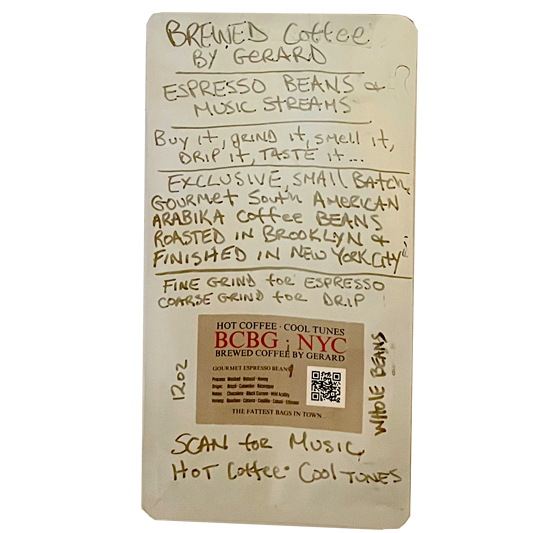 BREWED Coffee
BY GERARD
ESPRESSO BEANS &
MUSIC STREAMS
Buy it, grind it, smell it,
DRIP it, TASTE it...
EXCLUSIVE, SMALL Batch,
GOURMET South AMERICAN
ARABIKA Coffee BEANS
ROASTED IN BROOKLYN &
FINISHED IN NEW YORK City
FINE GRIND for ESPRESSO
COARSE GRIND for DRIP
HOT COFFEE · COOL TUNES
BCBG ; NYC
BREWED COFFEE BY GERARD
GOURMET ESPRESSO BEANS
Process: Washed · Natural · Honey
Origin: Brazil · Colombia · Nicaragua
Notes: Chocolate · Black Currant · Mild Acidity
Varietal: Bourbon · Catuai
THE FATTEST BAGS IN TOWN
12oz
WHOLE BEANS
SCAN for MUSIC,
HOT Coffee · Cool TUNES